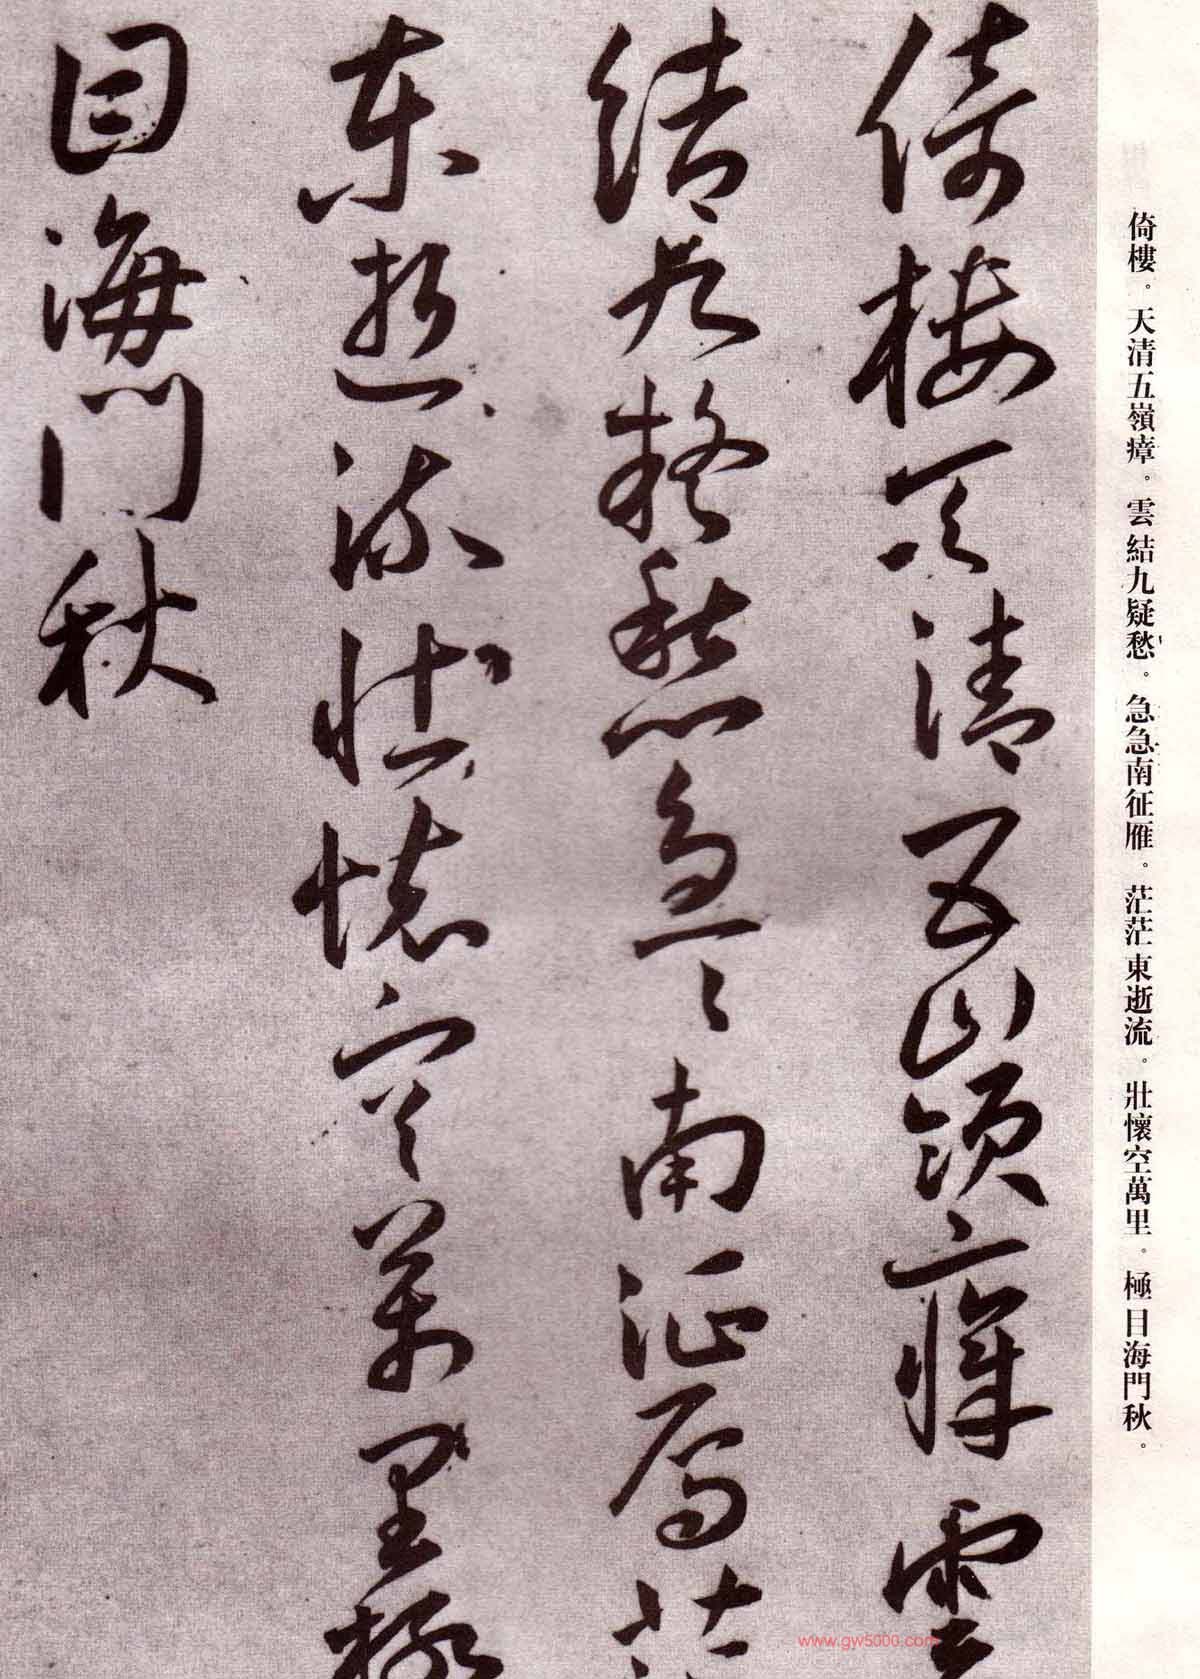 倚樓。天清五嶺瘴。雲結九疑愁。急急南征雁。茫茫東逝流。壯懷空萬里。極目海門秋。
倚樓天清五嶺瘴雲
結九疑愁急〻南征雁茫
東逝流壯懷空萬里極
目海門秋
www.gw5000.com